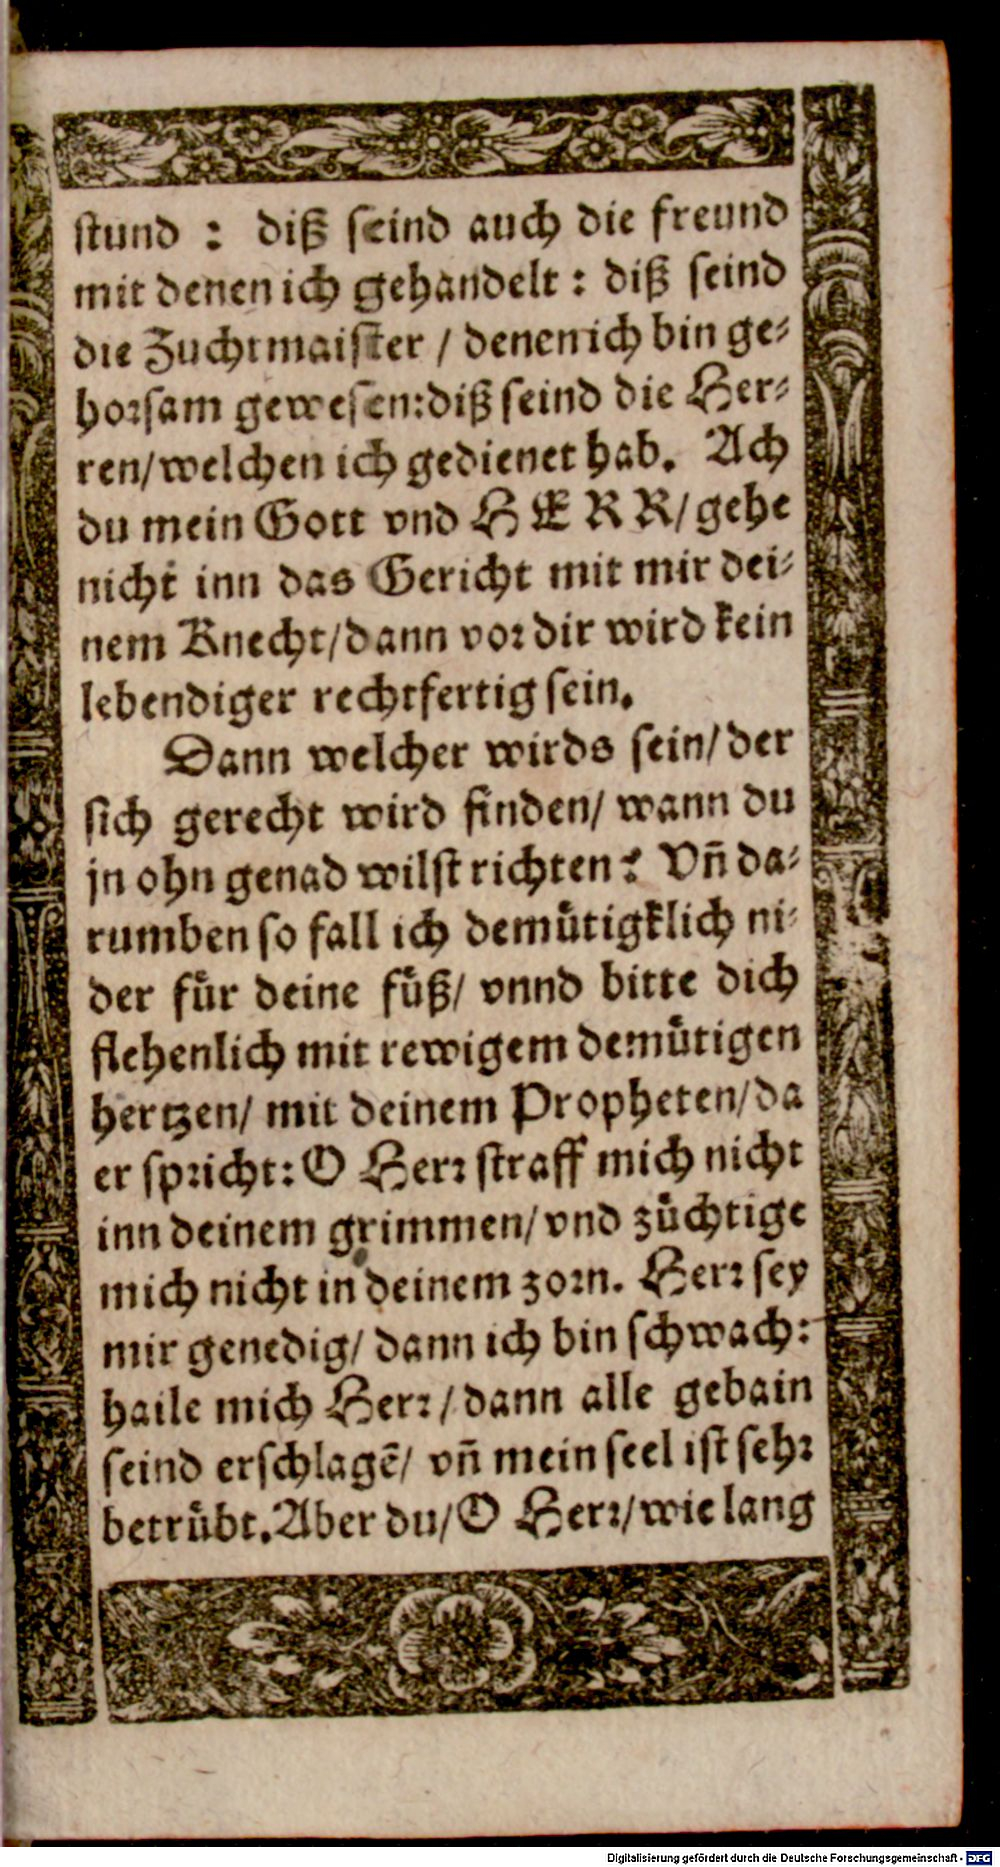 stund : diß seind auch die freund
mit denen ich gehandelt : diß seind
die Zuchtmaister / denen ich bin ge-
horsam gewesen: diß seind die Her-
ren/ welchen ich gedienet hab. Ach
du mein Gott vnd HERR/ gehe
nicht inn das Gericht mit mir dei-
nem Knecht/ dann vor dir wird kein
lebendiger rechtfertig sein.
Dann welcher wirds sein/ der
sich gerecht wird finden/ wann du
jn ohn genad wilst richten? Vñ da-
rumben so fall ich demuͤtigklich ni-
der fuͤr deine fuͤß/ vnnd bitte dich
flehenlich mit rewigem demuͤtigen
hertzen/ mit deinem Propheten/ da
er spricht: O Herr straff mich nicht
inn deinem grimmen/ vnd zuͤchtige
mich nicht in deinem zorn. Herr sey
mir genedig/ dann ich bin schwach:
haile mich Herr / dann alle gebain
seind erschlagē/ vñ mein seel ist sehr
betruͤbt. Aber du/ O Herr/ wie lang
Digitalisierung gefördert durch die Deutsche Forschungsgemeinschaft - DFG